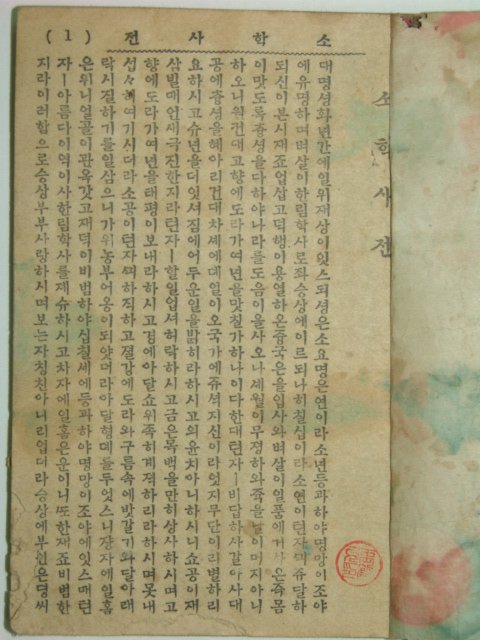 소학사전
(1) 전사학소
대명셩화년간에일위재상이잇스되셩은소요명은연이라소년등과하야명망이조야
에유명하며벼살이한림학사로좌승상에이르되나히칠십이라소연이런자에쥬달하
되신이본시재죠업삽고덕행이용열하온중국은을입사와벼살이일품에거사온즉몸
이맛도록충셩을다하야나라를도음이올사오나셰월이무졍하와쥭을날이머지아니
하오니원컨대고향에도라가여년을맛칠가하나이다한대런자ㅣ비답하사갈아사대
공에츙셩을혜아리건대차셰에데일이오국가에쥬셕지신이라엇지무단이리별하리
요하시고슈년을더잇셔짐에어두운일을밝히라하시고의윤치아니하시니쇼공이재
삼빌매인새극진한지라런자ㅣ할일업셔허락하시고금은목백을만히상사하시며고
향에도라가여년을태평이보내라하시고경에아달쇼위족히계젹하리라하시며못내
섭々히여기시더라소공이런자에하직하고졀강에도라와구름속에밧갈기와달아래
락시질하기를일삼으니가위농부어옹이되얏더라아달형데를두엇스니쟝자에일홈
은위니얼골이관옥갓고재덕이비범하야십칠셰에등과하야명망이조야에잇스매런
자ㅣ아름다이역이사한림학사를졔슈하시고차자에일홈은운이니또한재죠비범한
지라이러함으로승상부부사랑하시며보는자칭찬아니리업더라승상에부인은뎡씨